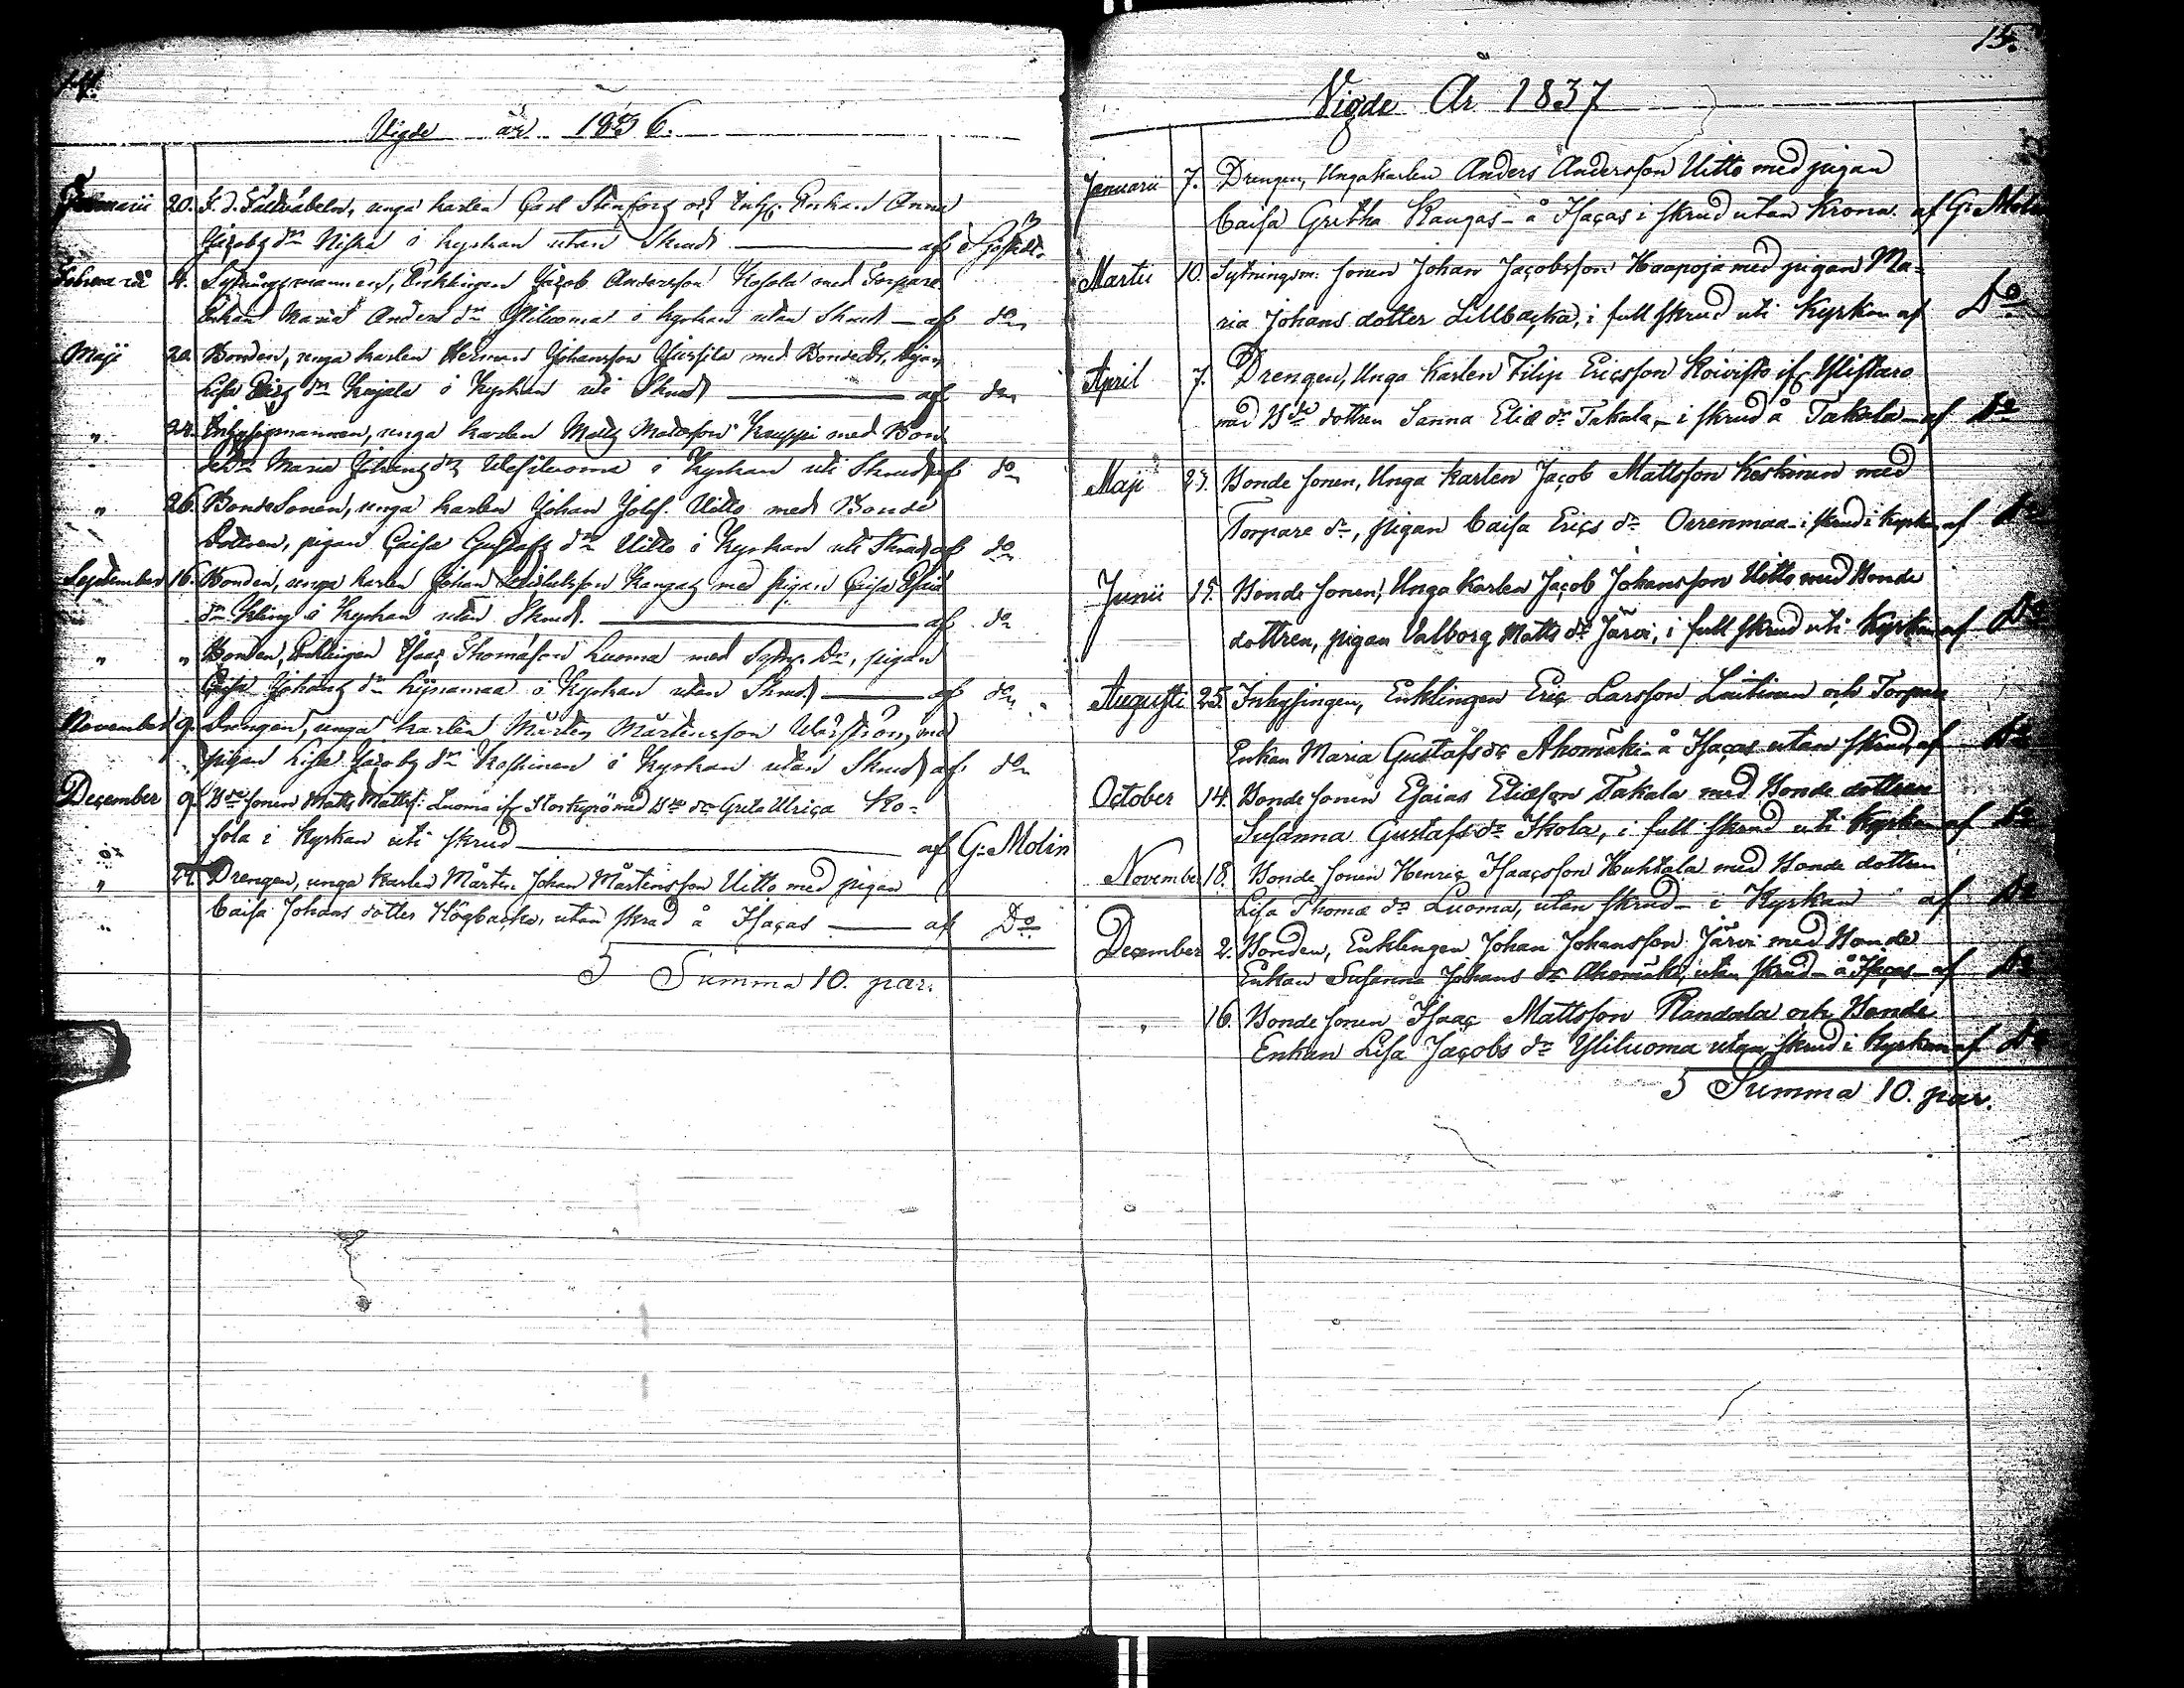 14.
Vigde år 1836.
Februarii 20. F. d. Fältväbeln, unga karlen Carl Stenfors och Inhys. Enkan Anna
Jacobs dr Niska i kyrkan utan Skrud — af
4. Sytningsmannen, Enklingen Jacob Andersson Kosola med Torpare
Enkan Maria Anders dr Yliluoma i kyrkan utan Skrud — af do
Maji 20. Bonden, unga karlen Herman Johansson med Bonde Dr, pigan
Lisa Eriks dr Kujala i Kyrkan uti Skrud — af do
" 24. Inhysesmannen, unga karlen Matts Mattsson Kauppi med Bon-
de dr Maria Johans dr i Kyrkan uti Skrud af do
" 26. Bonde Sonen, unga karlen Johan Josefs. Uitto med Bonde
Dottren, pigan Caisa Gustafs dr Uitto i Kyrkan uti Skrud af do
September 16. Bonden, unga karlen Johan Kangas med pigan Caisa Esaiæ
dr Kling i Kyrkan utan Skrud. — af do
" " Bonden, Enklingen Isaac Thomasson Luoma med Sytn. Dr, pigan
Caisa Johans dr i Kyrkan utan Skrud — af do
November 9. Drengen, unga karlen Mårten Mårtensson med
pigan Lisa Jacobs dr Koskinen i Kyrkan utan Skrud af do
December 9. Bde sonen Matts Matts. Luoma ifr Storkyrö med Bde dr Greta Ulrica Ko-
sola i Kyrkan uti skrud — af G: Molin
" 27. Drengen, unga Karlen Mårten Johan Mårtensson Uitto med pigan
Caisa Johans dotter Högbacka, utan skrud å Isacas — af Do
Summa 10. par.
15.
Vigde År 1837
Januarii 7. Drengen, Unga Karlen Anders Andersson Uitto med pigan
Caisa Gretha Kangas - å Isacas i skrud utan Krona. af G: Molin
Martii 10. Sytningsm: sonen Johan Jacobsson Haapoja med pigan Ma-
ria Johans dotter Lillbacka, i full skrud uti Kyrkan af Do
April 7. Drengen, Unga Karlen Filip Ericsson Koivisto ifr Ylistaro
med Bde dottren Sanna Eliæ dr Takala, - i skrud å Takala - af Do
Maji 23. Bonde sonen, Unga Karlen Jacob Mattsson Koskinen med
Torpare dr, pigan Caisa Erics dr Orrenmaa - i skrud i Kyrkan af Do
Junii 15. Bonde sonen, Unga Karlen Jacob Johansson Uitto med Bonde
dottren, pigan Valborg Matts dr Järvi, i full skrud uti Kyrkan af Do
Augusti 25. Inhysingen, Enklingen Eric Larsson Laitinen och Torpare
Enkan Maria Gustafs dr Ahomäki - å Isacas utan skrud, af Do
October 14. Bonde sonen Esaias Eliæson Takala med Bonde dottren
Susanna Gustafs dr Ikola, i full skrud uti Kyrkan af Do
November 18. Bonde sonen Henric Isaacsson Huhtala med Bonde dottren
Lisa Thomæ dr Luoma, utan skrud - i Kyrkan af Do
December 2. Bonden, Enklingen Johan Johansson Järvi med Bonde
Enkan Susanna Johans dr Ahomäki, utan skrud - å Isacas - af Do
" 16. Bonde sonen Isaac Mattsson Pandala och Bonde
Enkan Lisa Jacobs dr Yliluoma utan skrud i Kyrkan af Do
Summa 10. par.